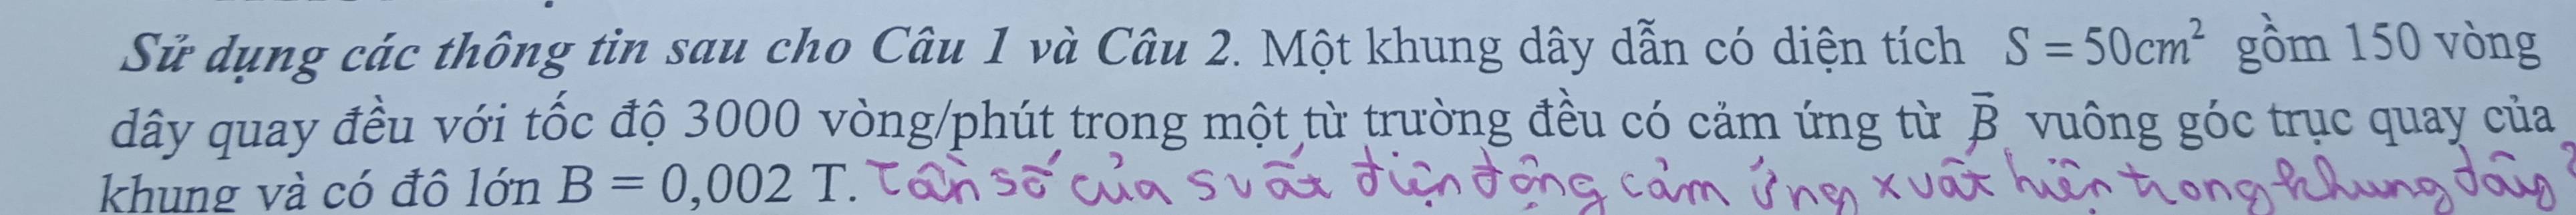 Sử dụng các thông tin sau cho Câu 1 và Câu 2. Một khung dây dẫn có diện tích S = 50cm² gồm 150 vòng
dây quay đều với tốc độ 3000 vòng/phút trong một từ trường đều có cảm ứng từ B⃗ vuông góc trục quay của
khung và có độ lớn B = 0,002 T. Tần số của suất điện động cảm ứng xuất hiện trong khung dây?